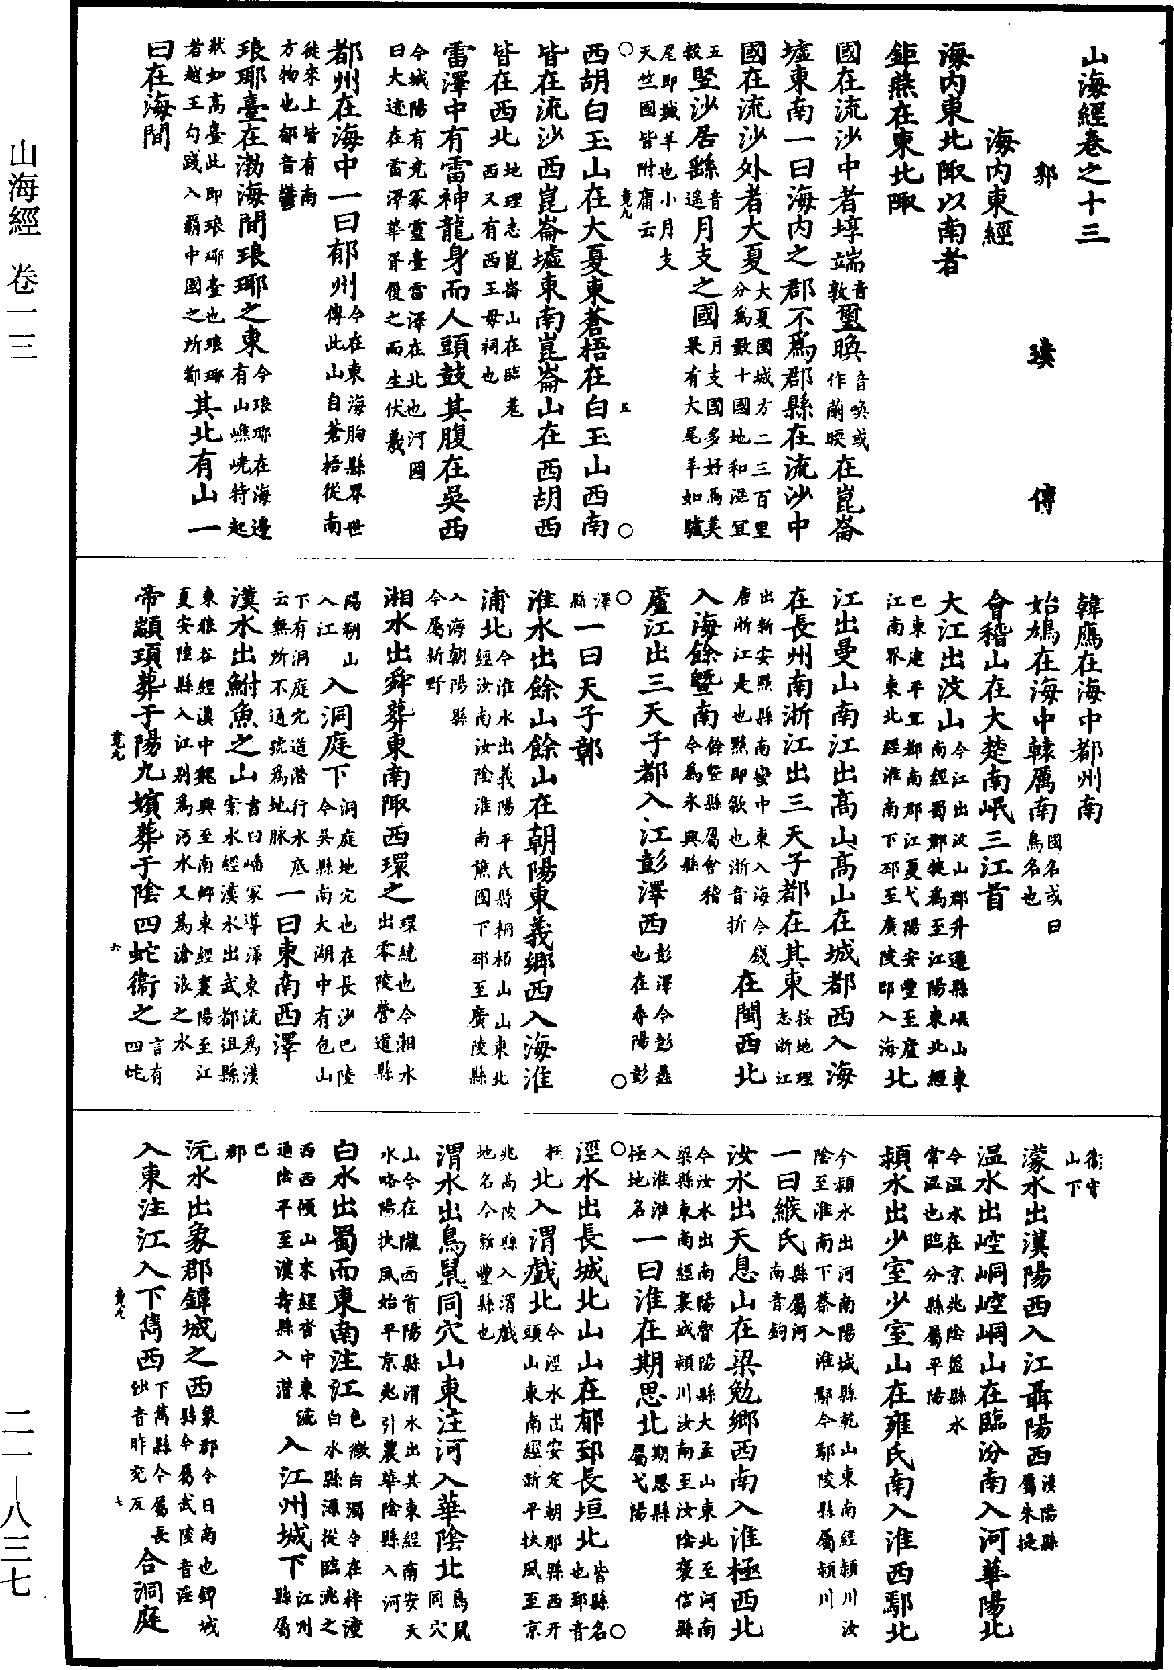 山海經卷之十三
郭 璞 傳
海内東經
海内東北陬以南者
鉅燕在東北陬
國在流沙中者埻端音敦璽㬇音喚或作繭㬉在崑崙
墟東南一曰海内之郡不爲郡縣在流沙中
國在流沙外者大夏大夏國城方二三百里分爲數十國地和温宜
五穀豎沙居繇音遥月支之國月支國多好馬美果有大尾羊如驢
尾即羬羊也小月支天竺國皆附庸云
西胡白玉山在大夏東蒼梧在白玉山西南
皆在流沙西崑崙墟東南崑崙山在西胡西
皆在西北地理志崑崙山在臨羌西又有西王母祠也
雷澤中有雷神龍身而人頭鼓其腹在吳西
今城陽有堯冢靈臺雷澤在北也河圖曰大迹在雷澤華胥履之而生伏羲
都州在海中一曰郁州今在東海朐縣界世傳此山自蒼梧從南
徙來上皆有南方物也郁音鬱
琅琊臺在渤海間琅琊之東今琅琊在海邊有山嶕嶢特起
狀如高臺此即琅琊臺也琅琊者越王勾踐入霸中國之所都其北有山一
曰在海間
韓鴈在海中都州南
始鳩在海中轅厲南國名或曰鳥名也
會稽山在大楚南岷三江首
大江出汶山今江出汶山郡升遷縣岷山東南經蜀郡犍爲至江陽東北經
巴東建平宜都南郡江夏弋陽安豐至廬江南界東北經淮南下邳至廣陵郡入海北
江出曼山南江出高山高山在城都西入海
在長州南浙江出三天子都在其東按地理志浙江
出新安黟縣南蠻中東入海今錢唐浙江是也黟即歙也浙音折在閩西北
入海餘暨南餘暨縣屬會稽今爲永興縣
廬江出三天子都入江彭澤西彭澤今彭蠡也在尋陽彭
澤縣一曰天子鄣
淮水出餘山餘山在朝陽東義鄉西入海淮
浦北今淮水出義陽平氏縣桐栢山山東北經汝南汝陰淮南譙國下邳至廣陵縣
入海朝陽縣今屬新野
湘水出舜葬東南陬西環之環繞也今湘水出零陵營道縣
陽朔山入江入洞庭下洞庭地穴也在長沙巴陵今吳縣南太湖中有包山
下有洞庭穴道潛行水底云無所不通號爲地脉一曰東南西澤
漢水出鮒魚之山書曰嶓冢導漾東流爲漢案水經漢水出武都沮縣
東狼谷經漢中魏興至南鄉東經襄陽至江夏安陸縣入江别爲沔水又爲滄浪之水
帝顓頊葬于陽九嬪葬于陰四蛇衞之言有四蛇
衞守山下
濛水出漢陽西入江聶陽西漢陽縣屬朱提
温水出崆峒崆峒山在臨汾南入河華陽北
今温水在京兆陰盤縣水常温也臨汾縣屬平陽
潁水出少室少室山在雍氏南入淮西鄢北
今潁水出河南陽城縣乾山東南經潁川汝陰至淮南下蔡入淮鄢今鄢陵縣屬潁川
一曰緱氏縣屬河南音鉤
汝水出天息山在梁勉鄉西南入淮極西北
今汝水出南陽魯陽縣大盂山東北至河南梁縣東南經襄城潁川汝南至汝陰襃信縣
入淮淮極地名一曰淮在期思北期思縣屬弋陽
涇水出長城北山山在郁郅長垣北皆縣名也郅音
桎北入渭戲北今涇水出安定朝那縣西幵頭山東南經新平扶風至京
兆高陵縣入渭戲地名今新豐縣也
渭水出鳥鼠同穴山東注河入華陰北鳥鼠同穴
山今在隴西首陽縣渭水出其東經南安天水略陽扶風始平京兆弘農華陰縣入河
白水出蜀而東南注江色微白濁今在梓潼白水縣源從臨洮之
西西傾山來經沓中東流通陰平至漢壽縣入潛入江州城下江州縣屬
巴郡
沅水出象郡鐔城之西象郡今日南也鐔城縣今屬武陵音淫
入東注江入下雋西下雋縣今屬長沙音昨兖反合洞庭
山海經 卷一三
二一—八三七